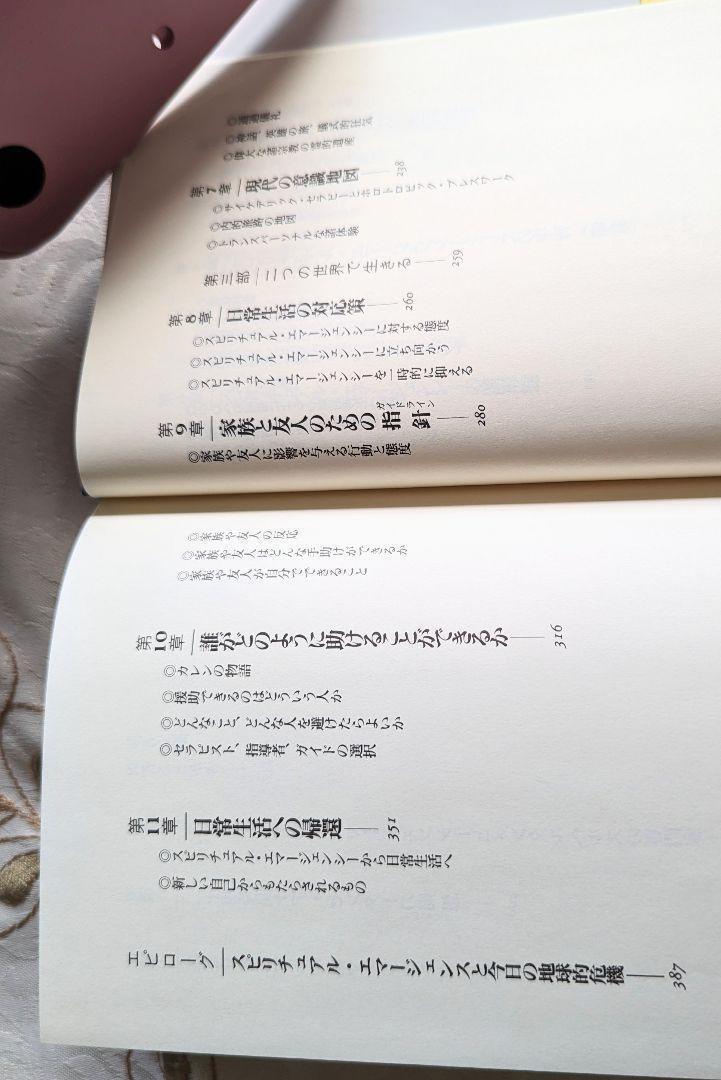 ◎通過儀礼
◎神話、英雄の旅、儀式的狂気
◎偉大な諸宗教の霊的遺産
第7章 現代の意識地図 238
◎サイケデリック・セラピーとホロトロピック・ブレスワーク
◎内的旅路の地図
◎トランスパーソナルな諸体験
第三部 二つの世界で生きる 259
第8章 日常生活の対応策 260
◎スピリチュアル・エマージェンシーに対する態度
◎スピリチュアル・エマージェンシーに立ち向かう
◎スピリチュアル・エマージェンシーを一時的に抑える
第9章 家族と友人のための指針 280
ガイドライン
◎家族や友人に影響を与える行動と態度
◎家族や友人の反応
◎家族や友人はどんな手助けができるか
◎家族や友人が自分でできること
第10章 誰がどのように助けることができるか 316
◎カレンの物語
◎援助できるのはどういう人か
◎どんなこと、どんな人を避けたらよいか
◎セラピスト、指導者、ガイドの選択
第11章 日常生活への帰還 351
◎スピリチュアル・エマージェンシーから日常生活へ
◎新しい自己からもたらされるもの
エピローグ スピリチュアル・エマージェンスと今日の地球的危機 387